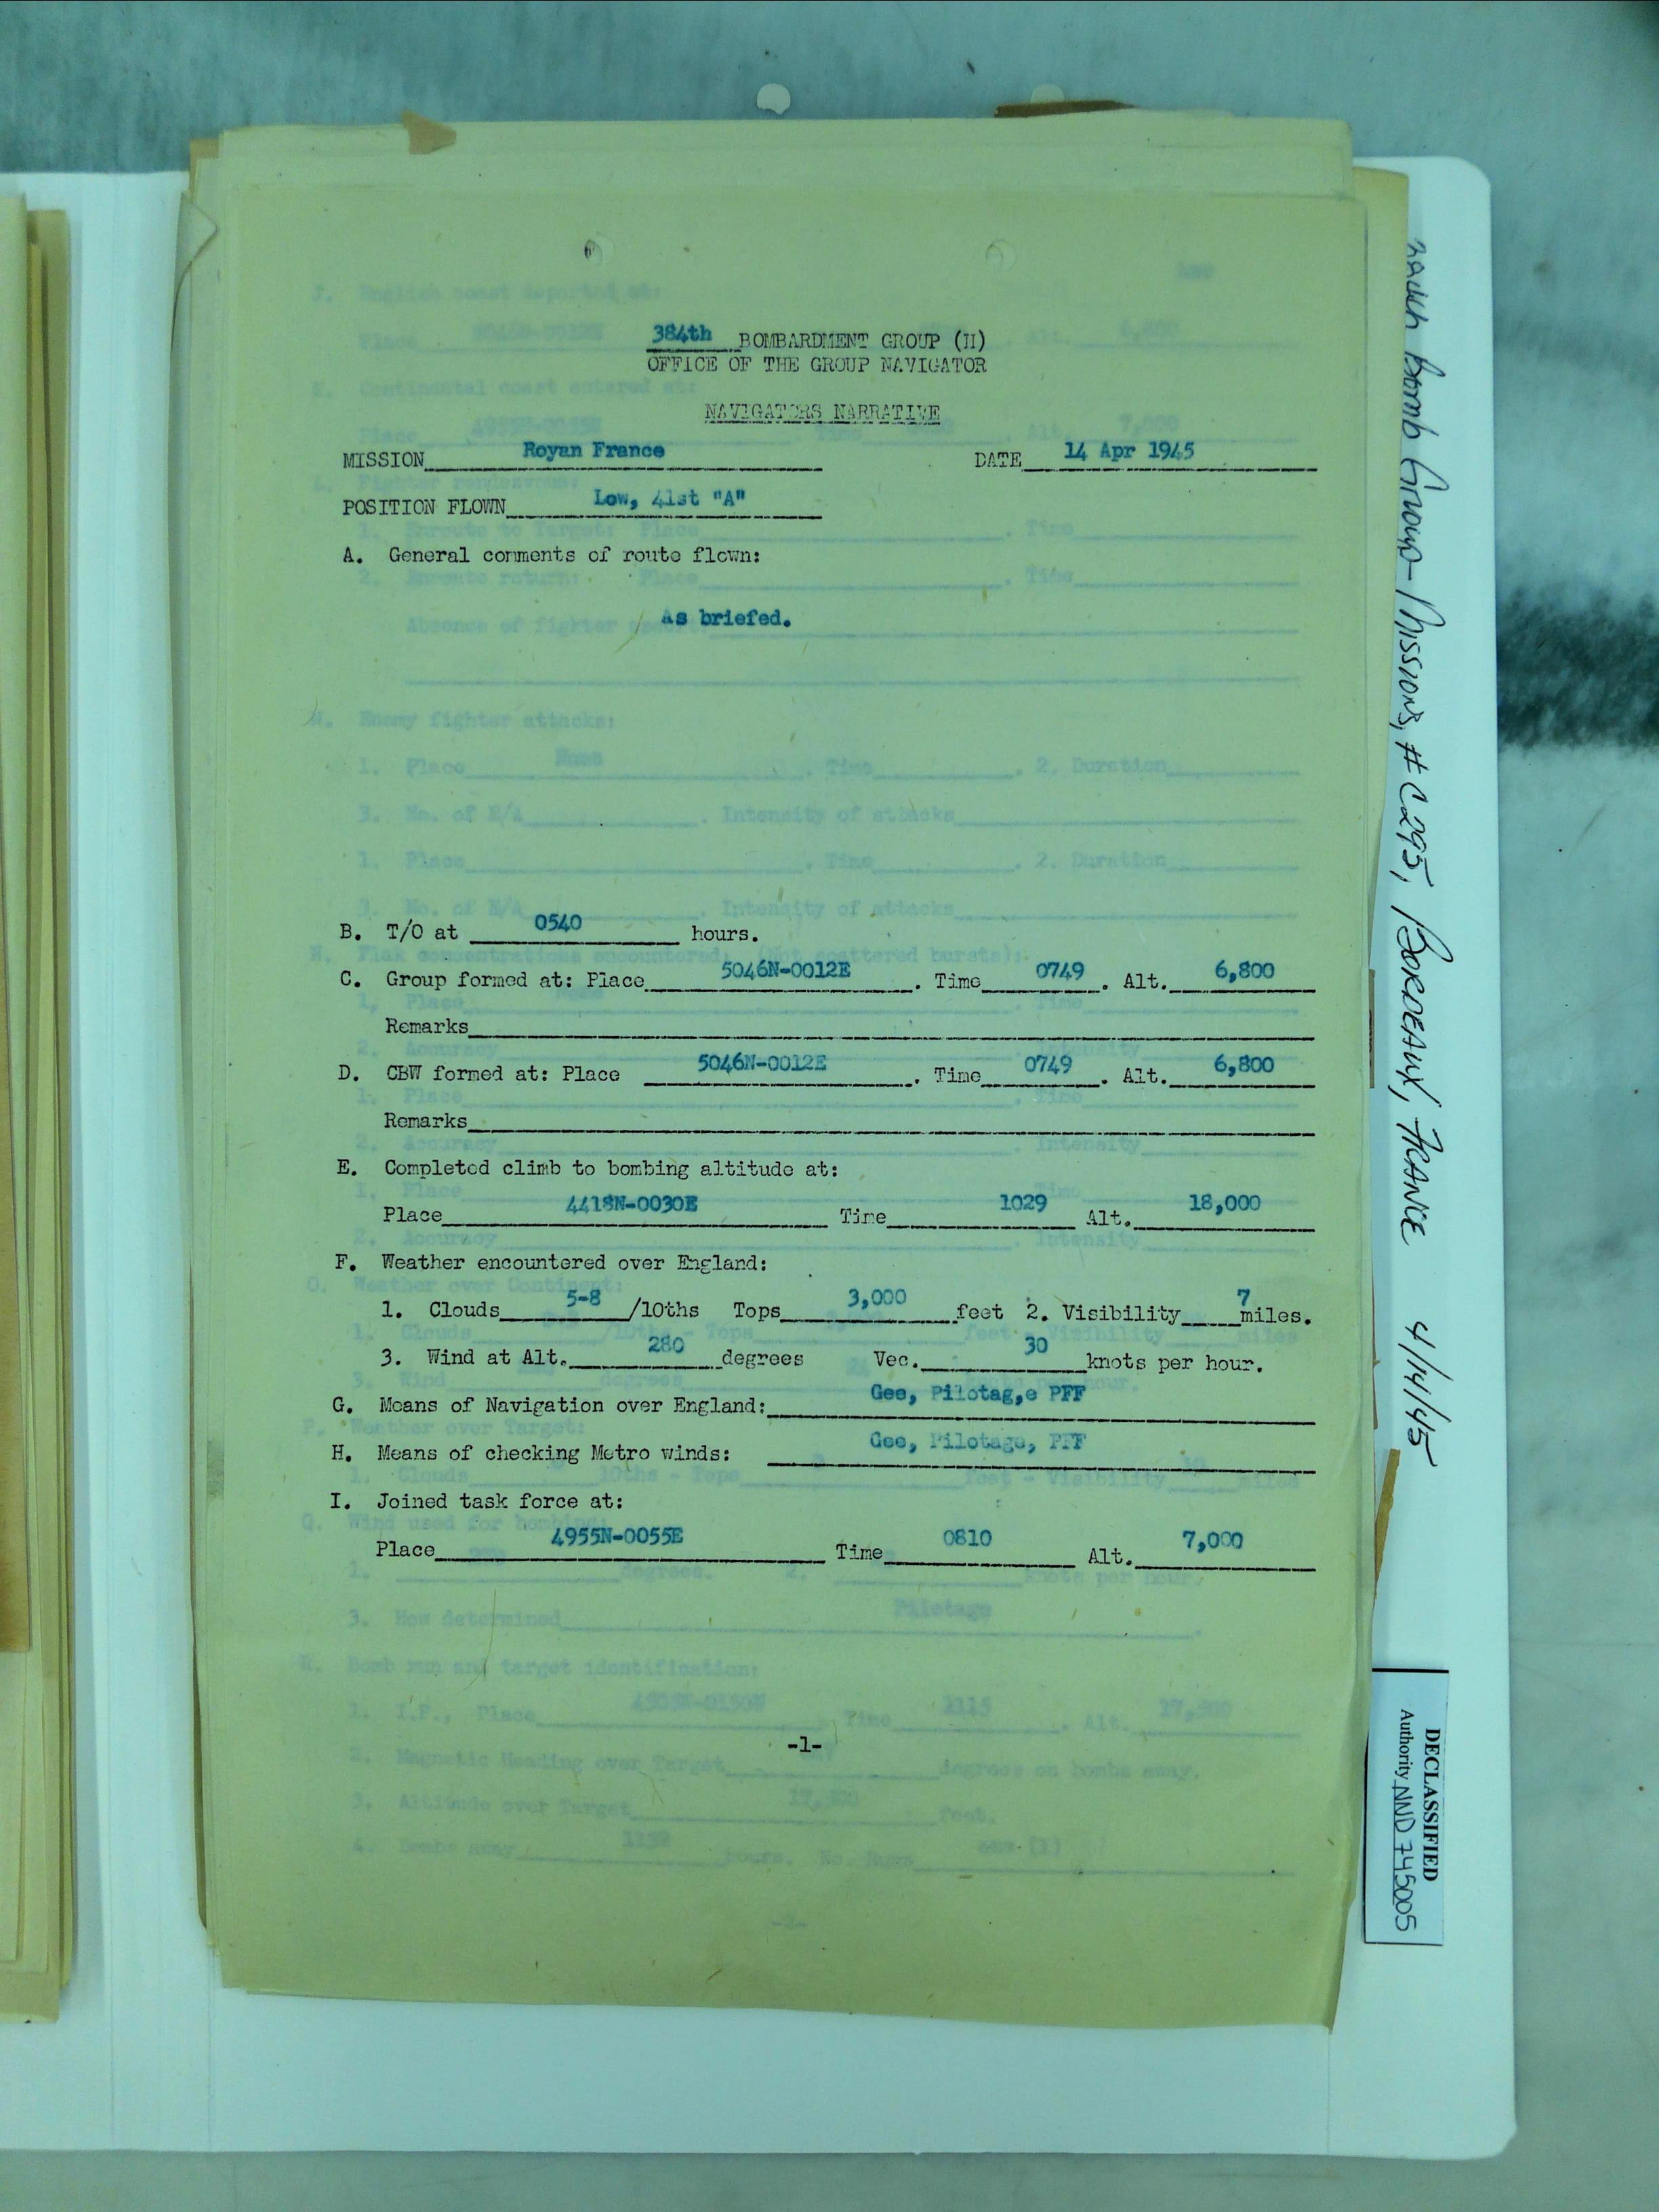 384th BOMBARDMENT GROUP (H)
OFFICE OF THE GROUP NAVIGATOR
NAVIGATORS NARRATIVE
MISSION Royan France DATE 14 Apr 1945
POSITION FLOWN Low, 41st "A"
A. General comments of route flown:
As briefed.
B. T/O at 0540 hours.
C. Group formed at: Place 5046N-0012E. Time 0749. Alt. 6,800
Remarks
D. CBW formed at: Place 5046N-0012E. Time 0749. Alt. 6,800
Remarks
E. Completed climb to bombing altitude at:
Place 4418N-0030E Time 1029 Alt. 18,000
F. Weather encountered over England:
1. Clouds 5-8 /10ths Tops 3,000 feet 2. Visibility 7 miles.
3. Wind at Alt. 280 degrees Vec. 30 knots per hour.
G. Means of Navigation over England: Gee, Pilotag,e PFF
H. Means of checking Metro winds: Gee, Pilotage, PFF
I. Joined task force at:
Place 4955N-0055E Time 0810 Alt. 7,000
-1-
Bomb Group-Missions, #C295, BORDEAUX, FRANCE 4/14/45
DECLASSIFIED
Authority NND 745005